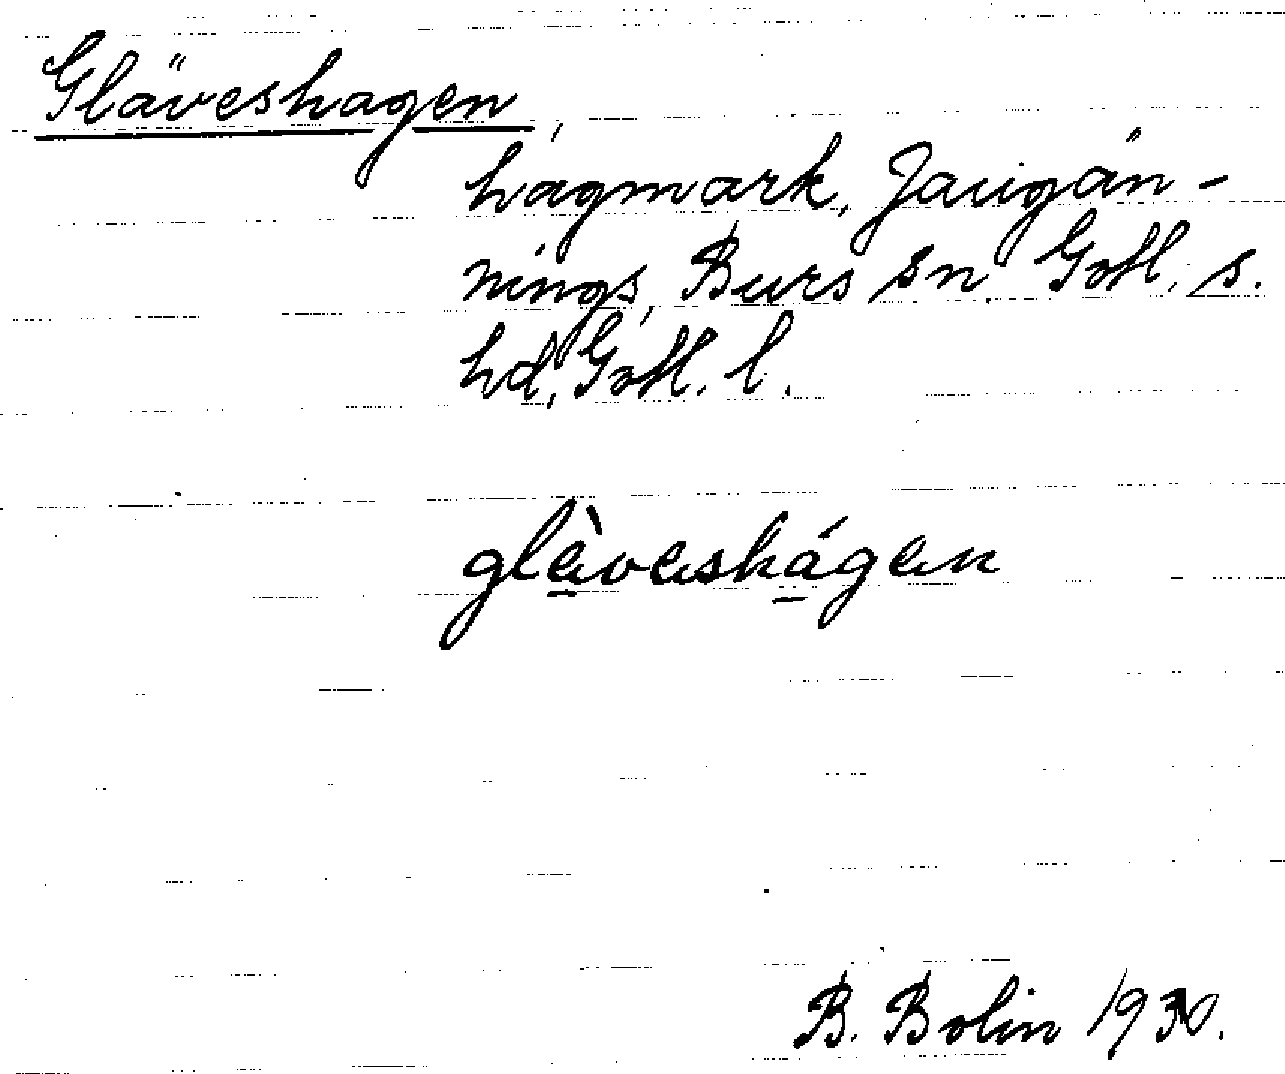 Gläveshagen,
hagmark, Jaugän-
nings, Burs sn Gotl. s.
hd, Gotl. l.
glèveshágen
B. Bolin 1930.